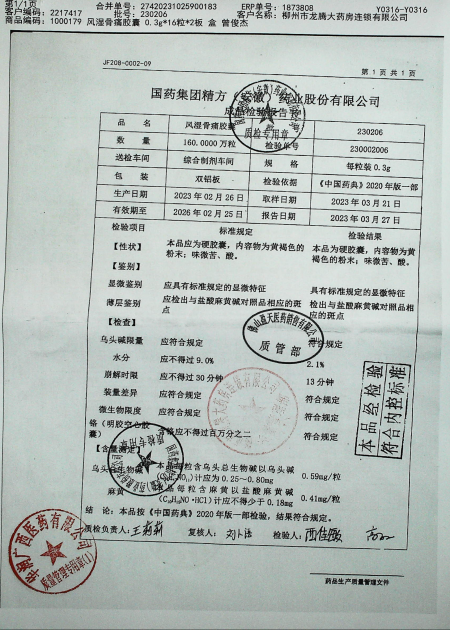 第1/1页 合并单号：27420231025900183 ERP单号：1873808 Y0316-Y0316
客户编码：2217417 批号：230206 客户名称：柳州市龙腾大药房连锁有限公司
商品编码：1000179 风湿骨痛胶囊 0.3g*16粒*2板 盒 曾俊杰
JF208-0002-09 第 1 页 共 1 页
国药集团精方（安徽）药业股份有限公司
成品检验报告书
品 名 风湿骨痛胶囊 230206
数 量 160.0000万粒 检验单号 230002006
送检车间 综合制剂车间 规 格 每粒装0.3g
包 装 双铝板 检验依据 《中国药典》2020年版一部
生产日期 2023年02月26日 取样日期 2023年03月21日
有效期至 2026年02月25日 报告日期 2023年03月27日
检验项目 标准规定 检验结果
【性状】 本品应为硬胶囊，内容物为黄褐色的粉末；味微苦、酸。 本品为硬胶囊，内容物为黄褐色的粉末；味微苦、酸。
【鉴别】
显微鉴别 应具有标准规定的显微特征 具有标准规定的显微特征
薄层鉴别 应检出与盐酸麻黄碱对照品相应的斑点 检出与盐酸麻黄碱对照品相应的斑点
【检查】
乌头碱限量 应符合规定 符合规定
水分 应不得过9.0% 2.1%
崩解时限 应不得过30分钟 13分钟
装量差异 应符合规定 符合规定
微生物限度 应符合规定 符合规定
铬（明胶空心胶囊） 含铬应不得过百万分之二 符合规定
【含量测定】
本品每粒含乌头总生物碱以乌头碱 计应为0.25～0.80mg 0.59mg/粒
麻黄 本品每粒含麻黄以盐酸麻黄碱 (C₁₀H₁₅NO·HCl) 计应不得少于0.18mg 0.41mg/粒
结 论：本品按《中国药典》2020年版一部检验，结果符合规定。
质检负责人： 复核人： 检验人：
药品生产质量管理文件
质检专用章
质管部
本品经检验
符合内控标准
质检专用章
华润广西医药有限公司
质量管理专用章(1)